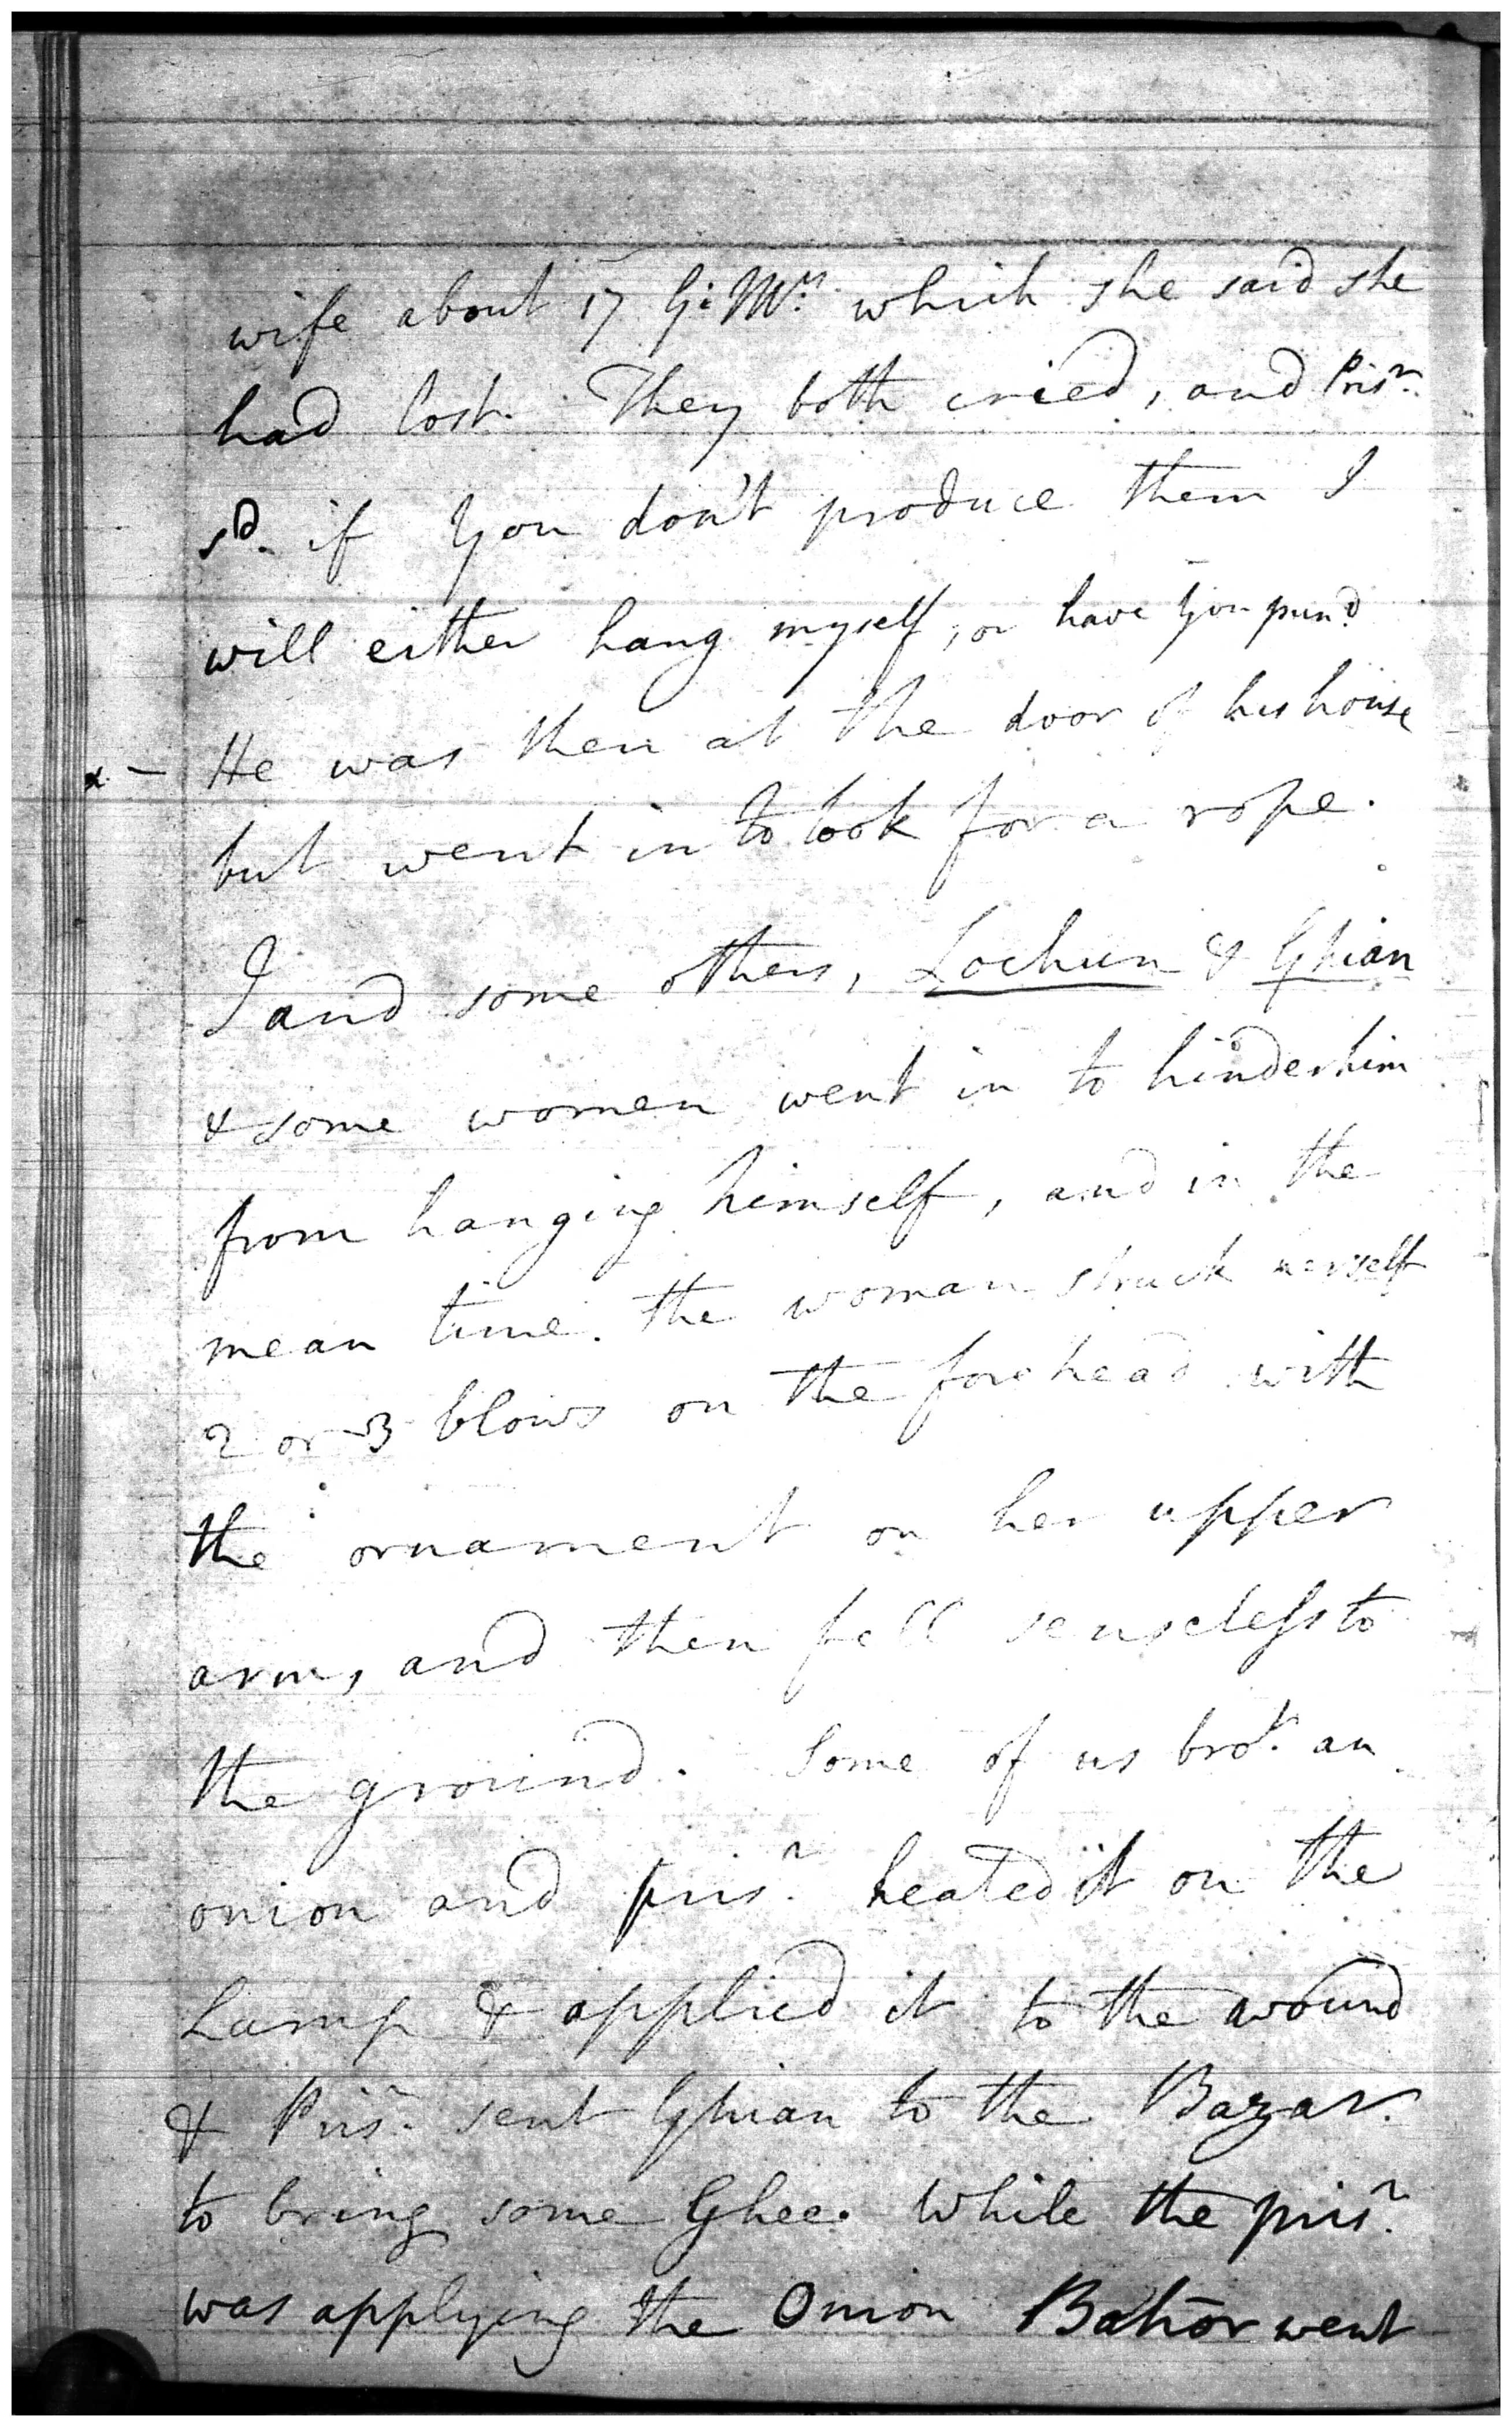 wife about 17 G. Mrs. which she said she
had lost. They both cried, and Prisr.
sd. if you don't produce them I
will either hang myself, or have you pund.
x. — He was then at the door of his house
but went in to look for a rope.
I and some others, Lochun & Ghian
& some women went in to hinder him
from hanging himself, and in the
mean time. the woman struck herself
2 or 3 blows on the forehead with
the ornament on her upper
arm, and then fell senseless to
the ground. Some of us brot. an
onion and prisr. heated it on the
Lamp & applied it to the wound
& Prisr. sent Ghian to the Bazar.
to bring some Ghee. While the prisr.
was applying the Onion Bahor went